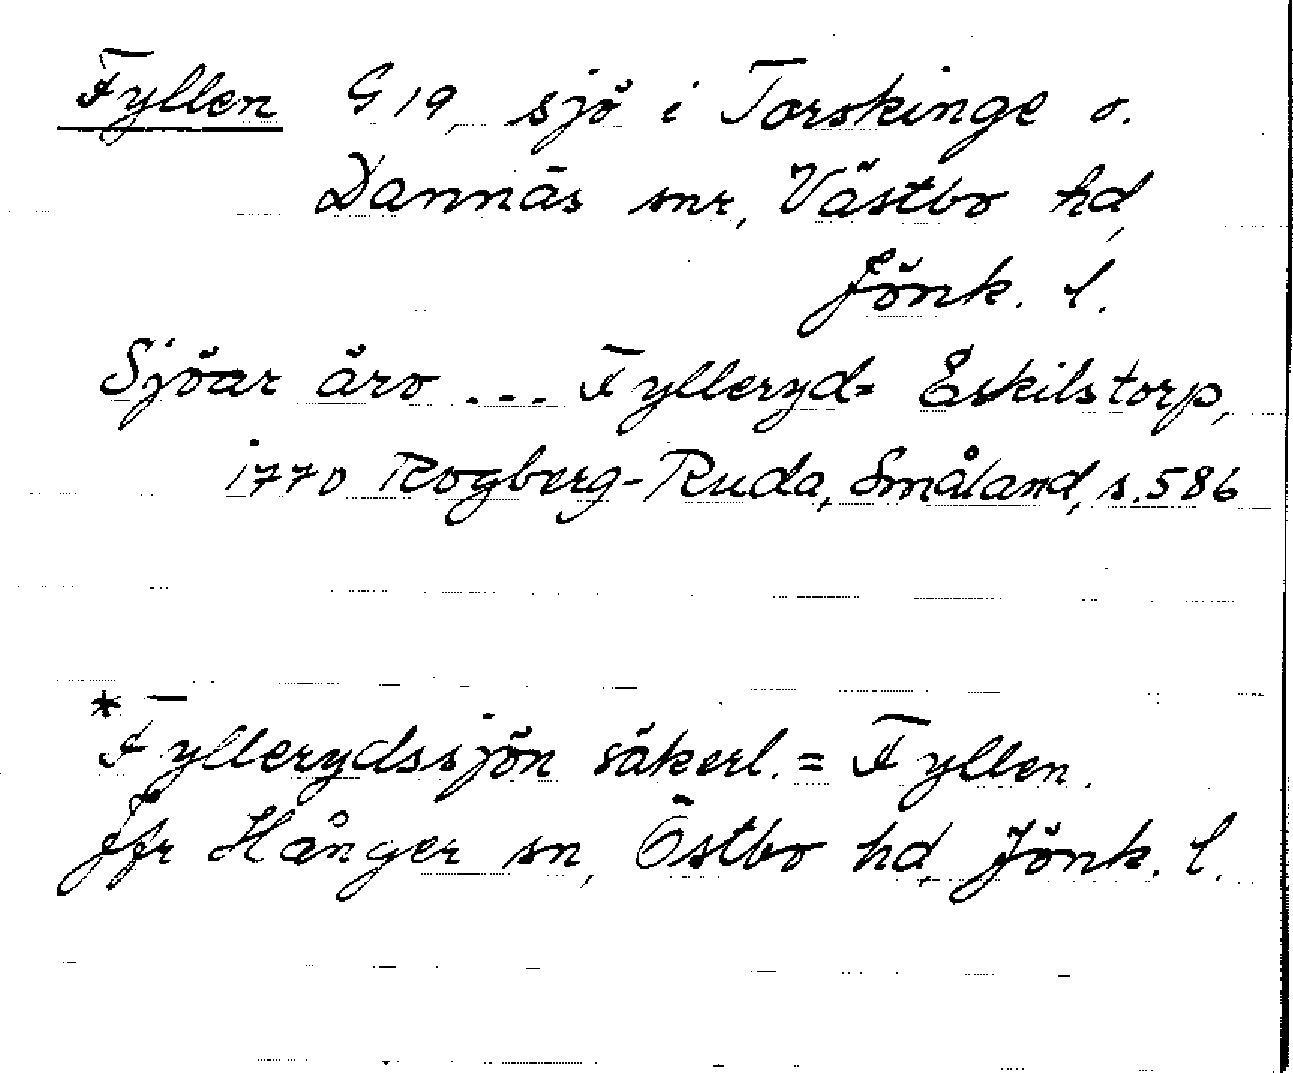 Fyllen G 19, sjö i Torskinge o.
Dannäs snr, Västbo hd,
Jönk. l.
Sjöar äro ... Fylleryd= Eskilstorp,
1770 Rogberg-Ruda, Småland, s. 586
*
Fyllerydssjön säkerl. = Fyllen.
Jfr Hånger sn, Östbo hd, Jönk. l.